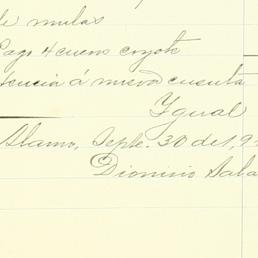 de mulas
Pago 4 cueros coyote
tencia á nueva cuenta
Ygual
Alamo, Septe. 30 de 1,9
Dionisio Sala